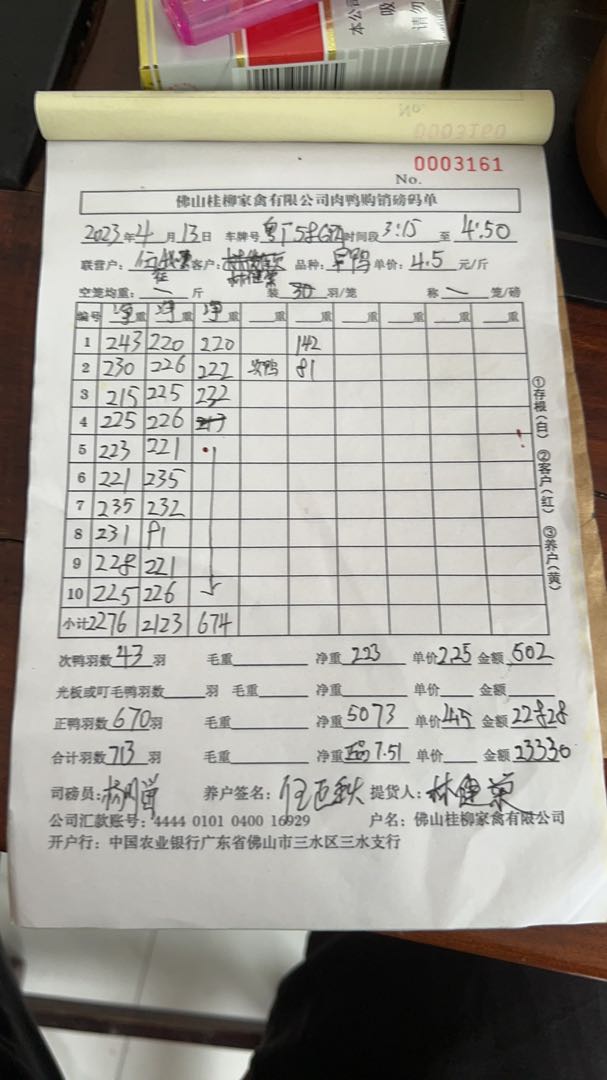 本公
吸
请勿
No.
0003160
0003161
No.
佛山桂柳家禽有限公司肉鸭购销磅码单
2023年4月13日 车牌号 时间段 3:15 至 4:50
联营户: 客户: 林健荣 品种: 单价: 4.5 元/斤
空笼均重: 一 斤 装 30 羽/笼 称 一 笼/磅
编号 净重 净重 净重 重 重 重 重 重 重
1 243 220 220 142
2 230 226 222 次鸭 81
3 215 225 232
4 225 226
5 223 221
6 221 235
7 235 232
8 231 91
9 228 221
10 225 226
小计 2276 2123 674
①存根(白) ②客户(红) ③养户(黄)
次鸭羽数 43 羽 毛重 净重 223 单价 2.25 金额 502
光板或叮毛鸭羽数 羽 毛重 净重 单价 金额
正鸭羽数 670 羽 毛重 净重 5073 单价 4.5 金额 22828
合计羽数 713 羽 毛重 净重 7.51 单价 金额 23330
司磅员: 养户签名: 提货人: 林健荣
公司汇款账号: 4444 0101 0400 16929 户名: 佛山桂柳家禽有限公司
开户行: 中国农业银行广东省佛山市三水区三水支行